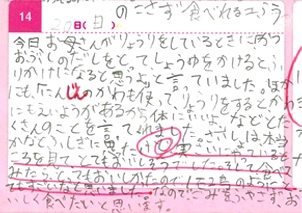 のこさず食べれるような
14
日(日)
今日お母さんがりょうりをしているときにかつ
おぶしのだしをとてしょうゆをかけるとふ
りかけになると思うよと言っていました。ほか
にも、にんじんのかわも使ってりょうりをするとかわ
にもえいようがあるから体にいいよなどとた
くさんのことを言ってくれました。さいしょは本当
かなとふしぎに思った
ころを見て、とてもおいしそうでした。
みたら、とてもおいしかたので
てもすごいなと思いました。なのでこれからは、やさいを、お
いしく食べたいと思います。